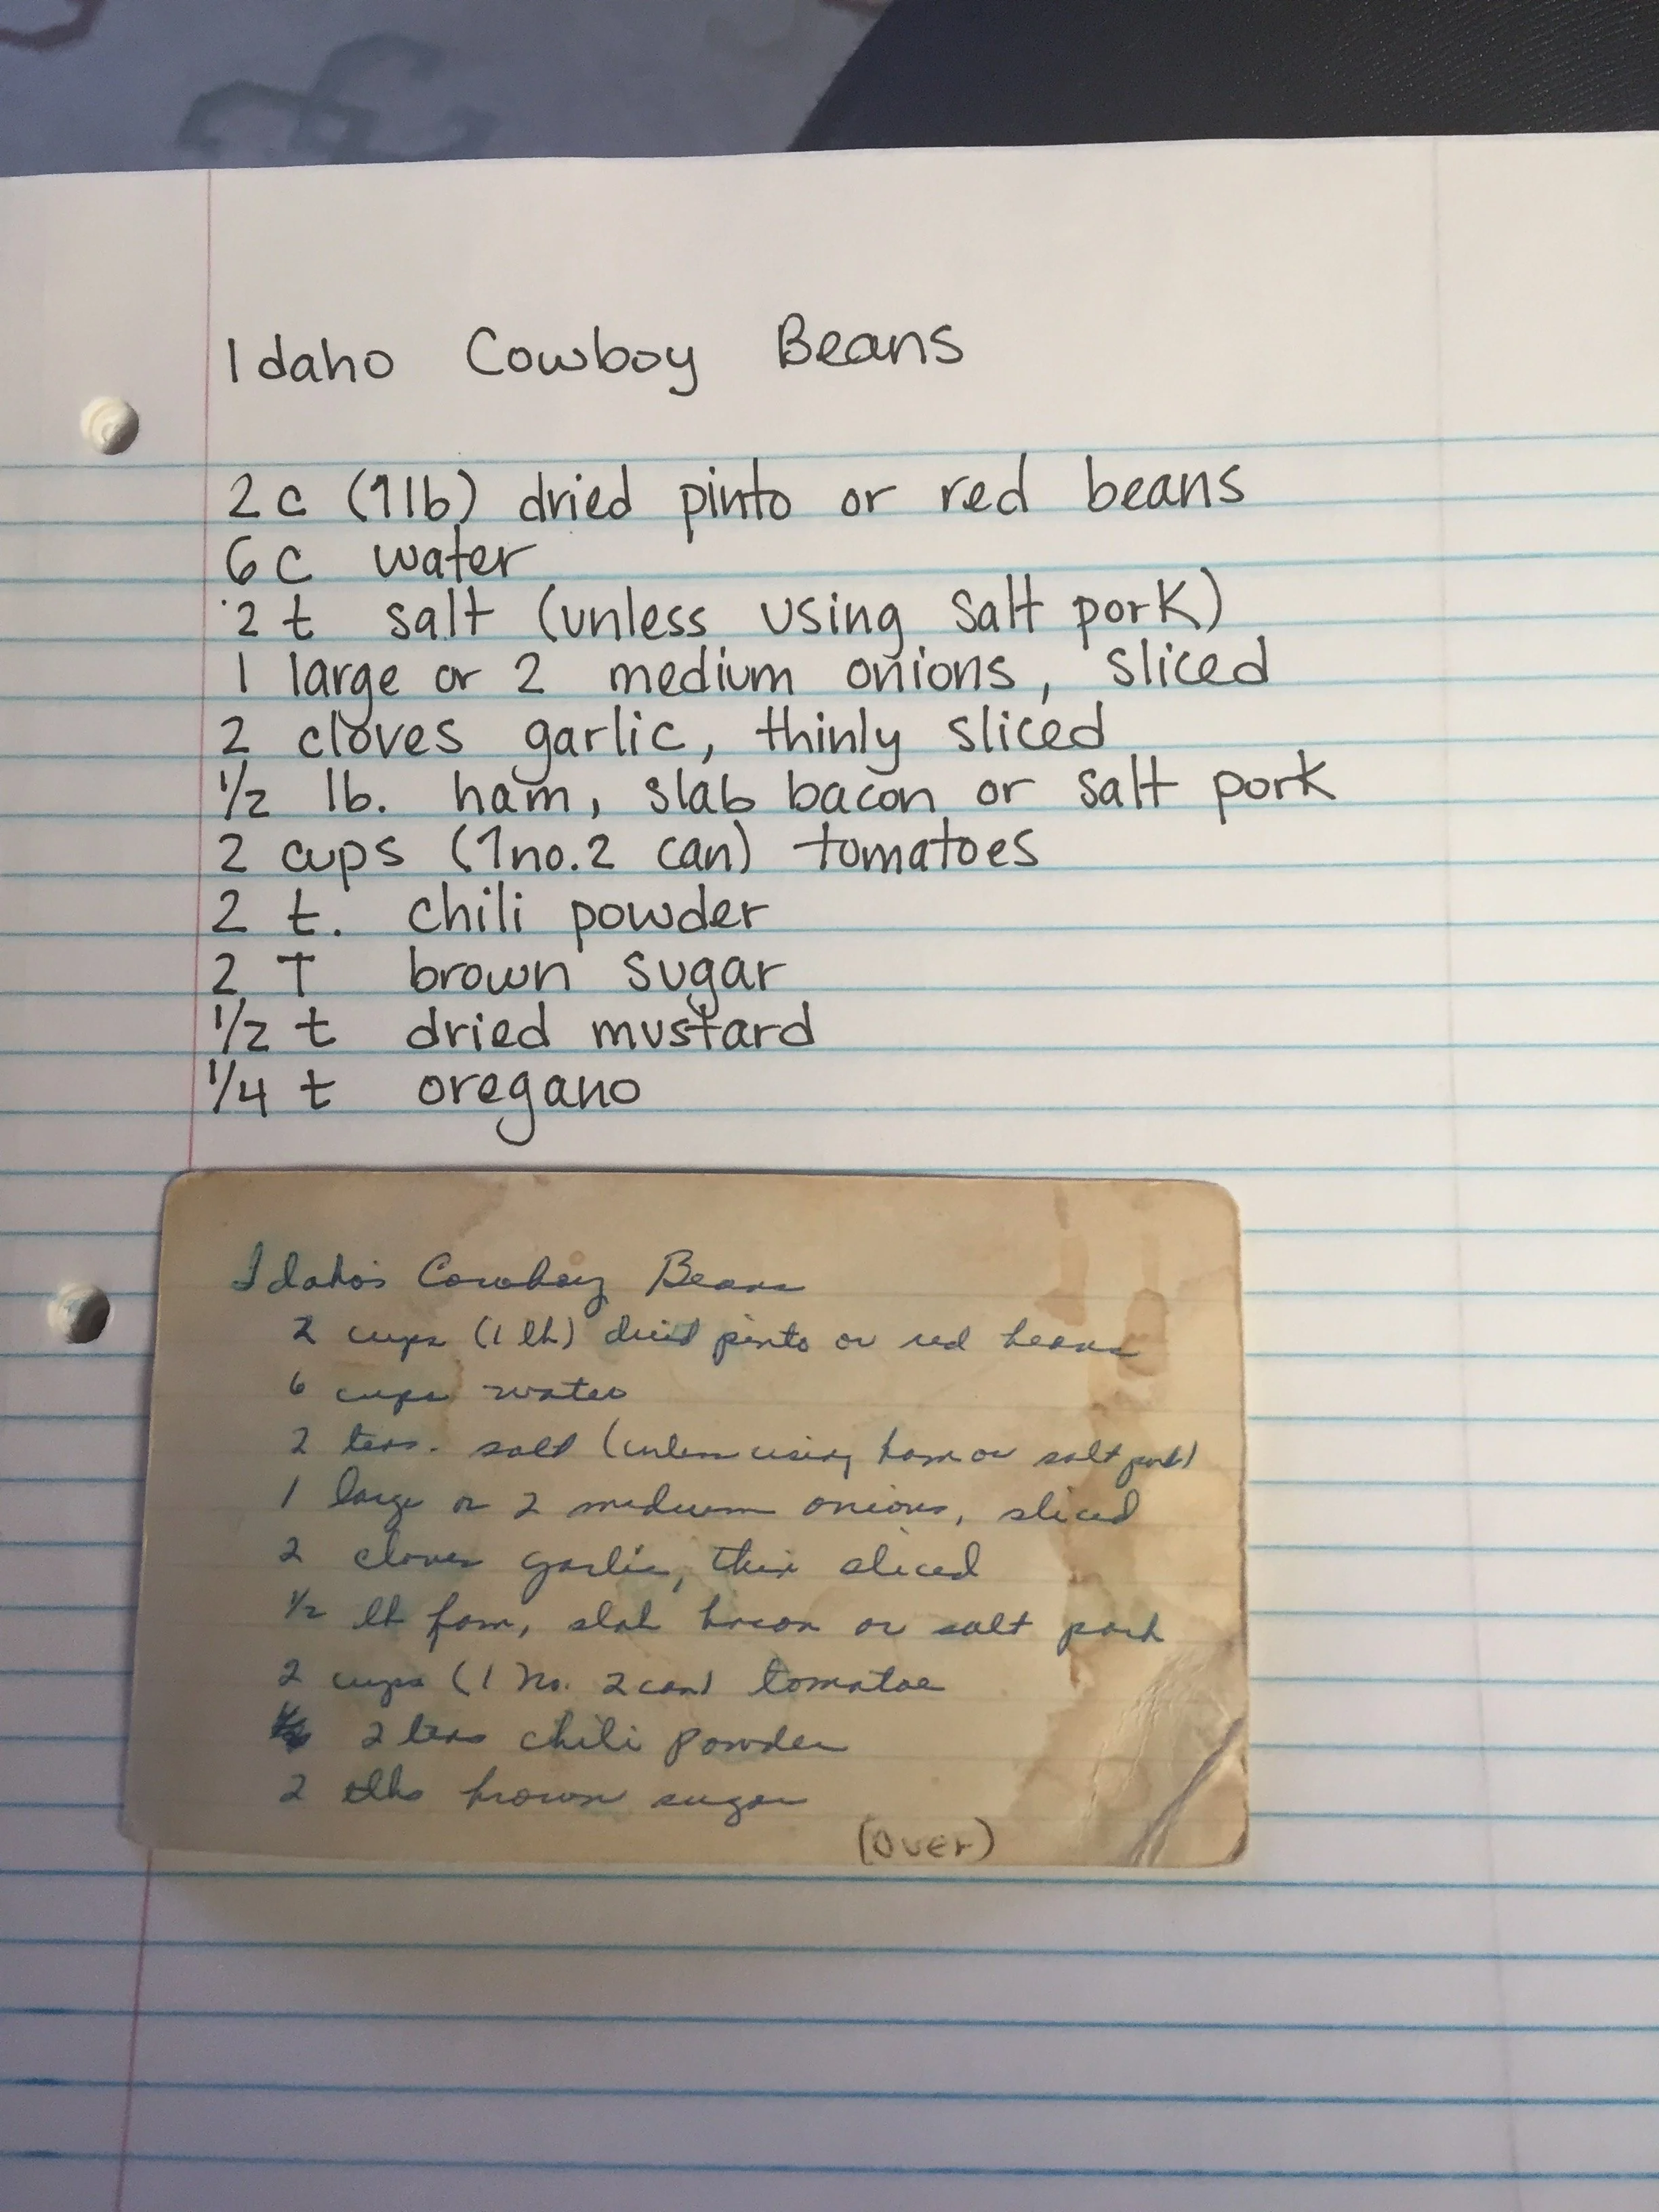 Idaho Cowboy Beans
2 c (1 lb) dried pinto or red beans
6 c water
2 t salt (unless using salt pork)
1 large or 2 medium onions, sliced
2 cloves garlic, thinly sliced
1/2 lb. ham, slab bacon or salt pork
2 cups (1 no. 2 can) tomatoes
2 t. chili powder
2 T brown sugar
1/2 t dried mustard
1/4 t oregano
Idaho's Cowboy Beans
2 cups (1 lb) dried pinto or red beans
6 cups water
2 teas. salt (unless using ham or salt pork)
1 large or 2 medium onions, sliced
2 cloves garlic, thin sliced
1/2 lb ham, slab bacon or salt pork
2 cups (1 No. 2 can) tomatoe
2 teas chili powder
2 tbs brown sugar
(over)